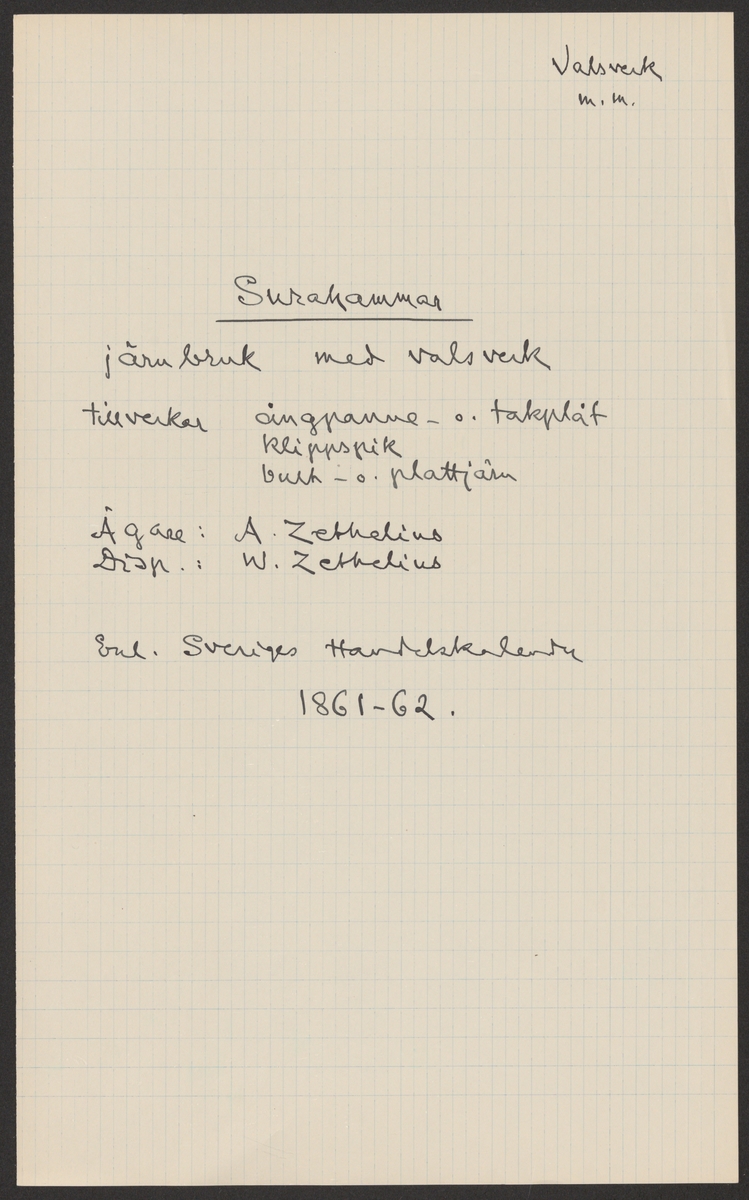 Valsverk
m.m.
Surahammar
järnbruk med valsverk
tillverkar ångpanne- o. takplåt
klippspik
bult- o. plattjärn
Ägare: A. Zethelius
Disp.: W. Zethelius
Enl. Sveriges Handelskalender
1861-62.